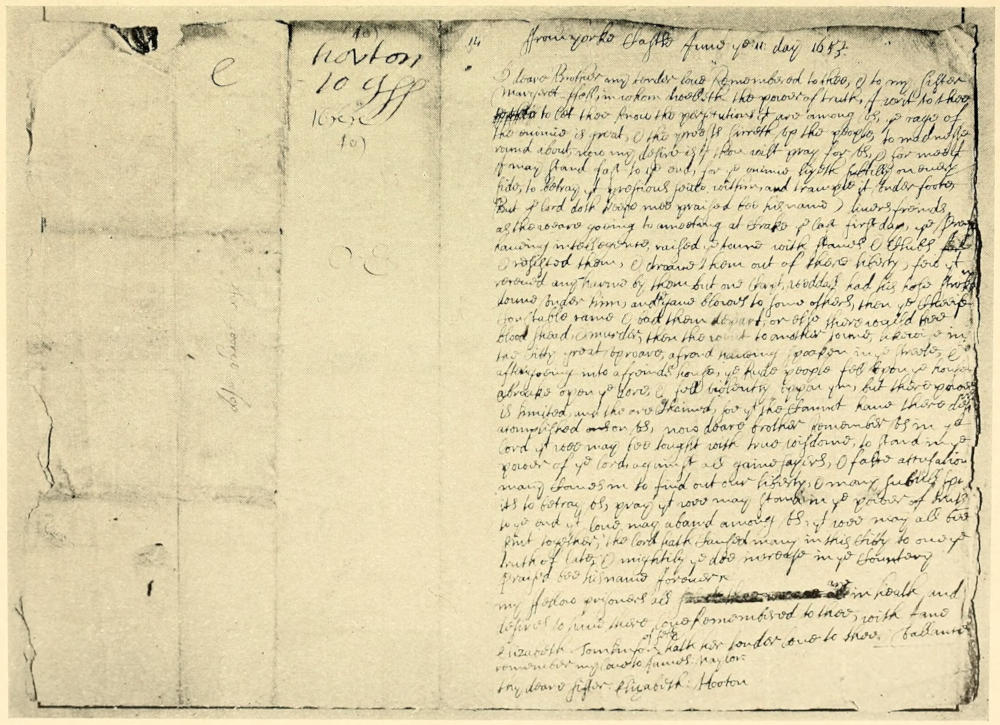 hooton
to gff
1652
14
ffrom yorke Castle June ye 11: day 1653
Deare Brother my tender love Remembered to thee, & to my sister
Margaret ffell, in whom dwelleth the power of truth, I writ to thee
to let thee know the persecutions yt are among us, ye rage of
the enimie is great, & the preests sirreth up the people, to madnesse
round about, now my desire is yt thou wilt pray for us, & for mee yt
I may stand fast to ye end, for ye enimie lyeth subtilly on every
side, to betray yt presious seede, within, and trample it under foote,
But ye lord doth keepe mee praised bee his name
as the weare going to a meeting at ye last first day, ye
haueing intelligence, raised ye towne with staves & Clubs
& resisted them, & droave them out of there liberty, few yt
receved any harme by them but one had his hose
downe under him, and gave blowes to some others, then ye
Constable came & bad them depart, or else there would bee
blood shead, & murder, then the went to another towne, likewise in
the Citty great uproare, a frend haveing spoken in ye streete, &
after going into a frends house, ye rude people fell upon ye house
& brake open ye dore, & fell violently uppon ym, but there power
is limited, and the are Chained, for yt the Cannot have there
acomplished on us, now deare brother remember us in ye
lord yt wee may bee taught with true wisdome, to stand in ye
power of ye lord, against all gaine sayers, & false accusations
many Comes in to find out our liberty, & many subtill
its to betray us, pray yt wee may stand in ye power of truth
to ye end yt love may aband among us, yt wee may all bee
knit together, the lord hath Caused many in this Citty to owne ye
truth of late, & mightily ye doe increase in ye Countery
Praised bee his name forever
my ffellow prisoners all are in health, and
desires to have there love Remembered to thee, with Jane
Elizabeth Tomlinson hath her tender love to thee
remember my love to James Naylor
thy deare sister Elizabeth: Hooton